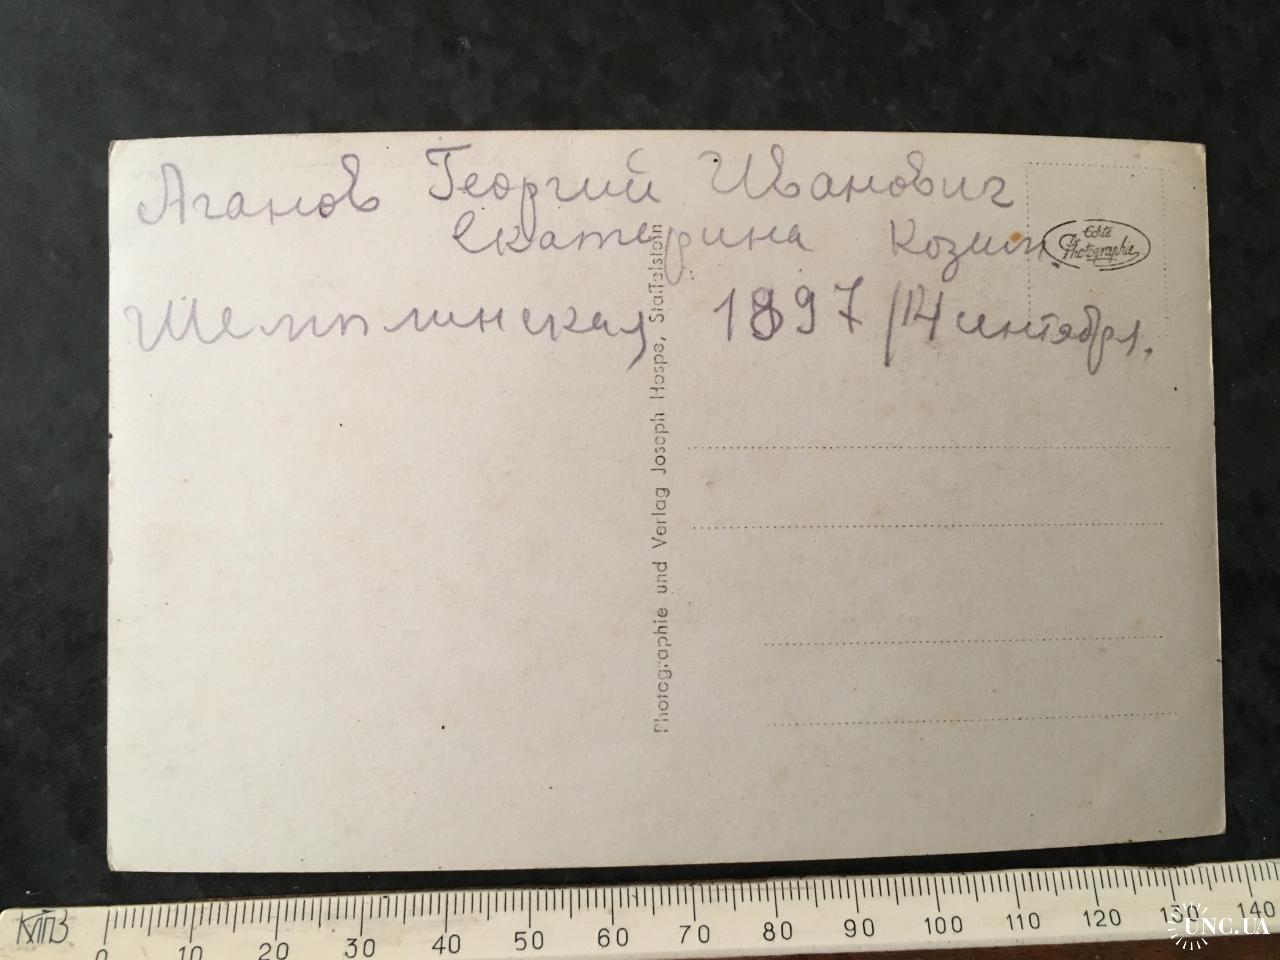 Аганов Георгий Иванович
Екатерина Козим
Шемплинская 1897/14 сентября.
Echte Photographie
Photographie und Verlag Joseph Hospe, Staffelstein
КМПЗ
0 10 20 30 40 50 60 70 80 90 100 110 120 130 140
UNC.UA